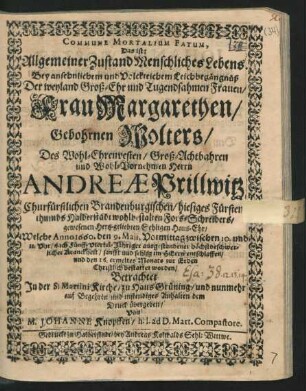 COMMUNE MORTALIUM FATUM,
Das ist:
Allgemeiner Zustand Menschliches Lebens
Bey ansehnlichem und Volckreichem Leichbegängnüs
Der weyland Groß-Ehr und Tugendsahmen Frauen/
Frau Margarethen/
Gebohrnen Wolters/
Des Wohl-Ehrenvesten/ Groß-Achtbahren
und Wohl-Vornehmen Herrn
ANDREÆ Prillwitz
Churfürstlichen Brandenburgischen/ hiesiges Fürsten-
thumbs Halberstadt wohlbestalten Forst-Schreibers/
gewesenen Hertz-geliebten Ehe-
Welche Anno 1680. den 9. Maii, Vormittag zwischen 10. und
11. Uhr, nach
licher Kranckheit/ sanfft und seelig im HErrn entschlaffen/
und den 16. ermelten Monats zur Erden
Christlich bestattet worden/
Betrachtet
In der S. Martini Kirche/ zu Haus Grüning/ und nunmehr
auf Begehren und anhalten dem
Druck übergeben/
Von
M. JOHANNE Knopffen/ h. t. ad D. Mart. Compastore.
Gedruckt in Halberstadt/ bey Andreas Kolwalds Sehl. Wittwe.
7